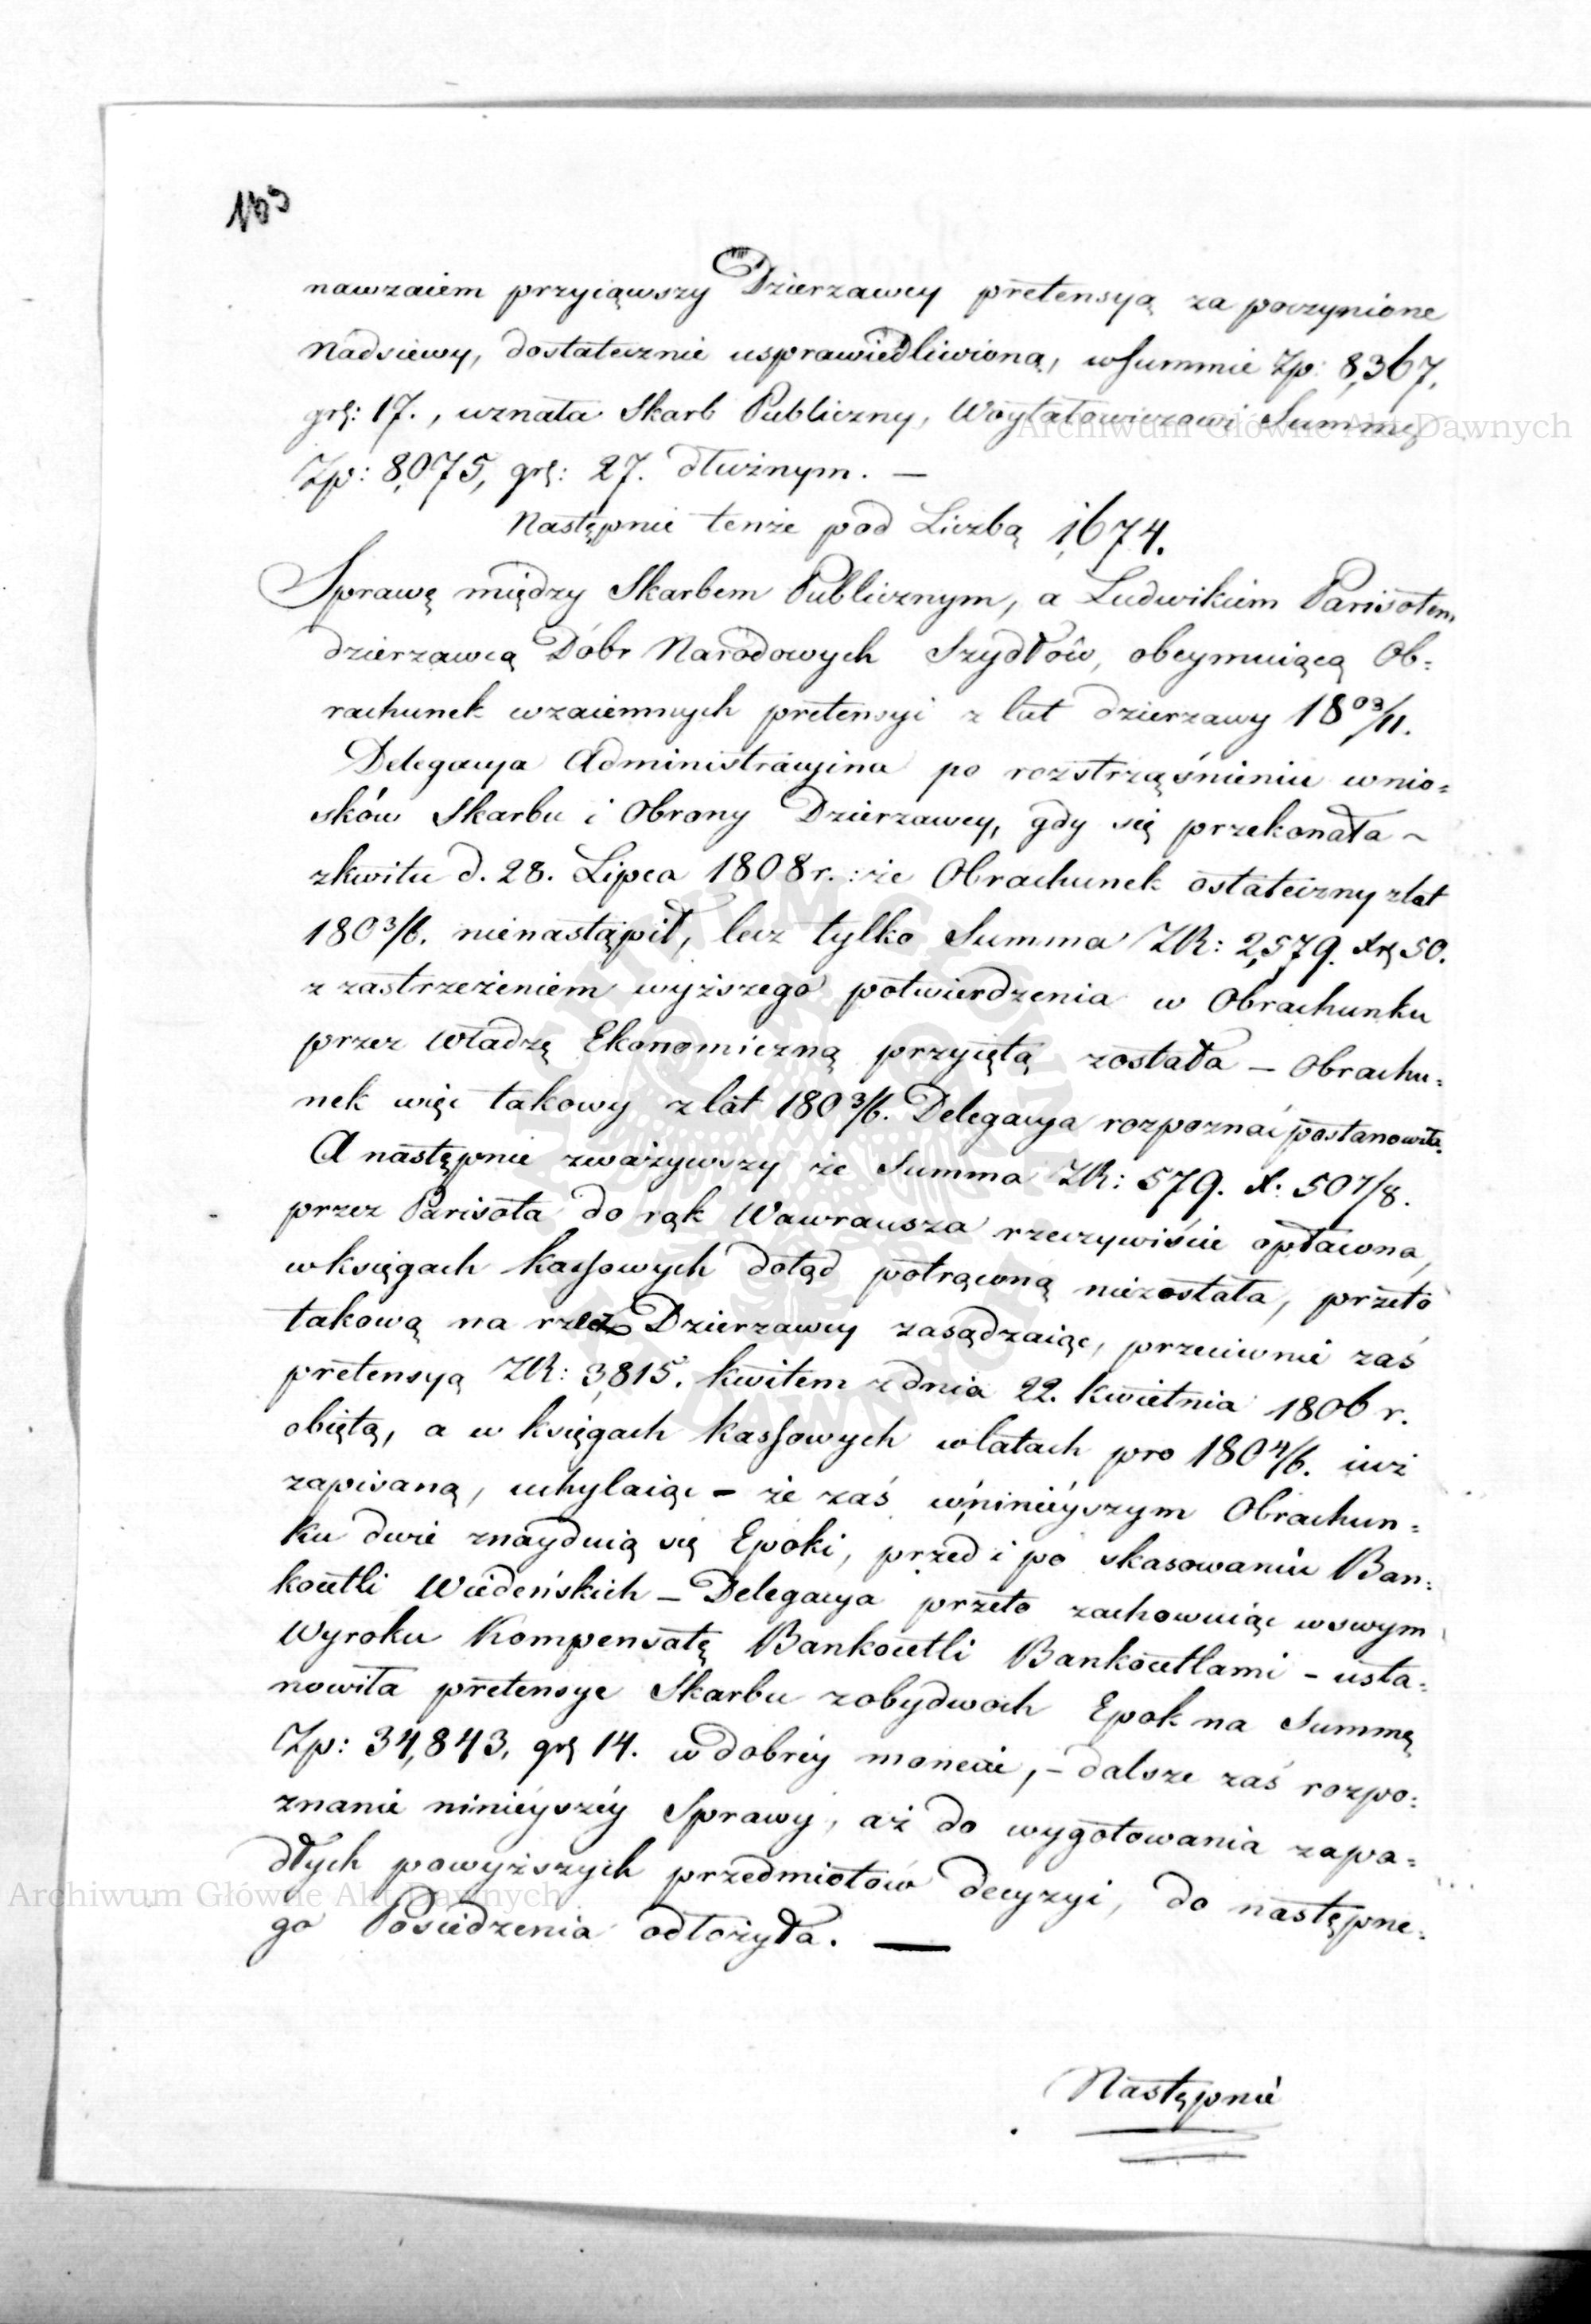 nawzaiem przyiąwszy Dzierzawcy pretensyą za poczynione
Nadsiewy, dostatecznie usprawiedliwioną, w summie Zp: 8,367,
gr: 17., uznała Skarb Publiczny, Woytałowiczowi Summę
Zp: 8,075, gr: 27. dłużnym. —
Następnie tenże pod Liczbą 1,674.
Sprawę między Skarbem Publicznym, a Ludwikiem Parisotem
dzierzawcą Dóbr Narodowych Szydłów, obeymuiącą Ob=
rachunek wzaiemnych pretensyi z lat dzierzawy 1803/11.
Delegacya Administracyina po rozstrząśnieniu wnio=
sków Skarbu i Obrony Dzierzawcy, gdy się przekonała ~
z kwitu d. 28. Lipca 1808 r.: że Obrachunek ostateczny z lat
1803/6. nienastąpił, lecz tylko Summa ZR: 2,579. xr 50.
z zastrzeżeniem wyższego potwierdzenia w Obrachunku
przez Władzę Ekonomiczną przyiętą została — Obrachu=
nek więc takowy z lat 1803/6. Delegacya rozpoznać postanowiła.
A następnie zważywszy że Summa ZR: 579. x: 50 7/8.
przez Parisota do rąk Wawrausza rzeczywiście opłacona,
w księgach kassowych dotąd potrąconą niezostała, przeto
takową na rzecz Dzierzawcy zasądzaiąc, przeciwnie zaś
pretensyą ZR: 3,815. kwitem z dnia 22. Kwietnia 1806 r.
obiętą, a w księgach kassowych w latach pro 1804/6. iuż
zapisaną, uchylaiąc - że zaś w ninieyszym Obrachun=
ku dwie znayduią się Epoki, przed i po skasowaniu Ban=
kocetli Wiedeńskich — Delegacya przeto zachowuiąc w swym
Wyroku Kompensatę Bankocetli Bankocetlami - usta=
nowiła pretensye Skarbu z obydwoch Epok na Summę
Zp: 34,843, gr 14. w dobréy monecie, - dalsze zaś rozpo=
znanie ninieyszéy Sprawy, aż do wygotowania zapa=
dłych powyższych przedmiotów decyzyi, do następne=
go Posiedzenia odłożyła. —
Następnie
Archiwum Główne Akt Dawnych
Archiwum Główne Akt Dawnych